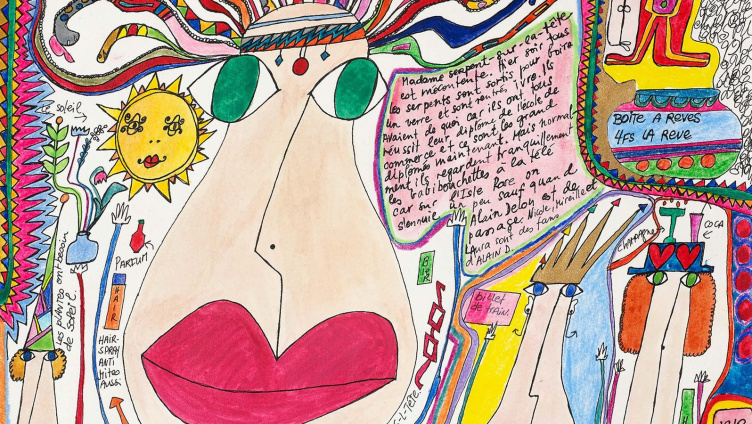 Madame serpent sur la tête
est mécontente. Hier soir tous
les serpents sont sortis pour boire
un verre et sont rentrés ivre. Ils
avaient de quoi car ils ont tous
réussit leur diplôme de l'école de
commerce et ce sont les grand
diplômés maintenant. Mais normal
ment ils regardent tranquillement
les babibouchettes à la télé
car sur l'Isle Rose on
s'ennuie un peu sauf quand
Alain Delon est de
passage. Nicole, Mireille et
Laura sont des fans
d'ALAIN D.
BOÎTE A REVES
4FS LA REVE
Le soleil
PARFUM
Les plantes ont besoin
de soleil.
HAIR
HAIR-
SPRAY
ANTI
MITES
AUSSI
BAR
billet
de train
CHAMPAGNE
COCA